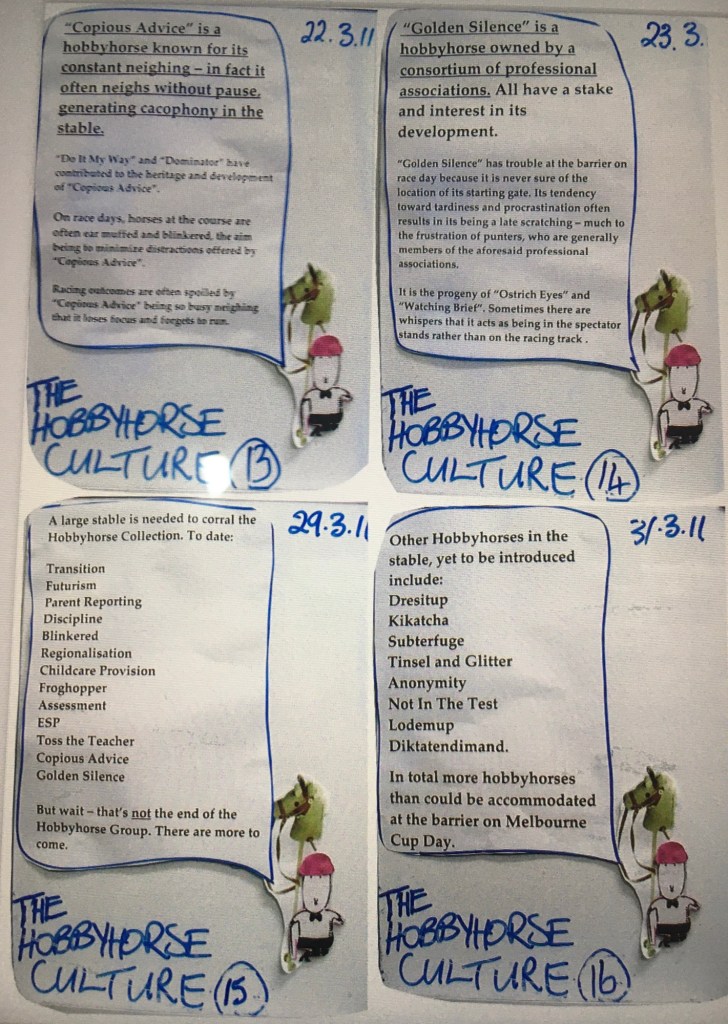 "Copious Advice" is a
hobbyhorse known for its
constant neighing – in fact it
often neighs without pause,
generating cacophony in the
stable.
"Do It My Way" and "Dominator" have
contributed to the heritage and development
of "Copious Advice".
On race days, horses at the course are
often ear muffed and blinkered, the aim
being to minimize distractions offered by
"Copious Advice".
Racing outcomes are often spoiled by
"Copious Advice" being so busy neighing
that it loses focus and forgets to run.
22.3.11
THE
HOBBYHORSE
CULTURE 13
"Golden Silence" is a
hobbyhorse owned by a
consortium of professional
associations. All have a stake
and interest in its
development.
"Golden Silence" has trouble at the barrier on
race day because it is never sure of the
location of its starting gate. Its tendency
toward tardiness and procrastination often
results in its being a late scratching – much to
the frustration of punters, who are generally
members of the aforesaid professional
associations.
It is the progeny of "Ostrich Eyes" and
"Watching Brief". Sometimes there are
whispers that it acts as being in the spectator
stands rather than on the racing track .
23.3.
THE
HOBBYHORSE
CULTURE 14
A large stable is needed to corral the
Hobbyhorse Collection. To date:
Transition
Futurism
Parent Reporting
Discipline
Blinkered
Regionalisation
Childcare Provision
Froghopper
Assessment
ESP
Toss the Teacher
Copious Advice
Golden Silence
But wait – that's not the end of the
Hobbyhorse Group. There are more to
come.
29.3.11
THE
HOBBYHORSE
CULTURE 15
Other Hobbyhorses in the
stable, yet to be introduced
include:
Dresitup
Kikatcha
Subterfuge
Tinsel and Glitter
Anonymity
Not In The Test
Lodemup
Diktatendimand.
In total more hobbyhorses
than could be accommodated
at the barrier on Melbourne
Cup Day.
31.3.11
THE
HOBBYHORSE
CULTURE 16